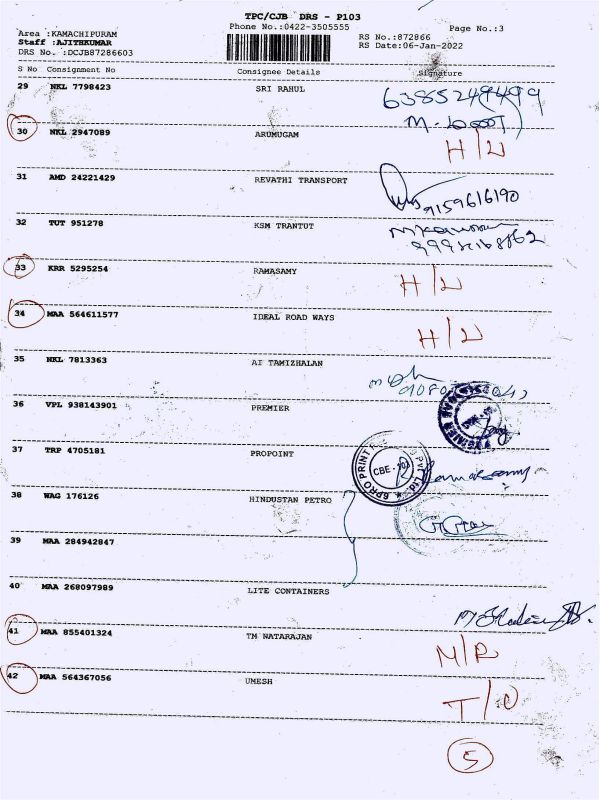 TPC/CJB DRS - P103
Phone No.:0422-3505555
Page No.:3
Area :KAMACHIPURAM
Staff :AJITHKUMAR
DRS No. :DCJB87286603
RS No.:872866
RS Date:06-Jan-2022
S No Consignment No Consignee Details Signature
29 NKL 7798423 SRI RAHUL
30 NKL 2947089 ARUMUGAM H/U
31 AMD 24221429 REVATHI TRANSPORT 9159616190
32 TUT 951278 KSM TRANTUT
33 KRR 5295254 RAMASAMY H/U
34 MAA 564611577 IDEAL ROAD WAYS H/U
35 NKL 7813363 AI TAMIZHALAN
36 VPL 938143901 PREMIER
37 TRP 4705181 PROPOINT
CBE
38 WAG 176126 HINDUSTAN PETRO
39 MAA 284942847
40 MAA 268097989 LITE CONTAINERS
41 MAA 855401324 TM NATARAJAN M/R
42 MAA 564367056 UMESH T/O
5